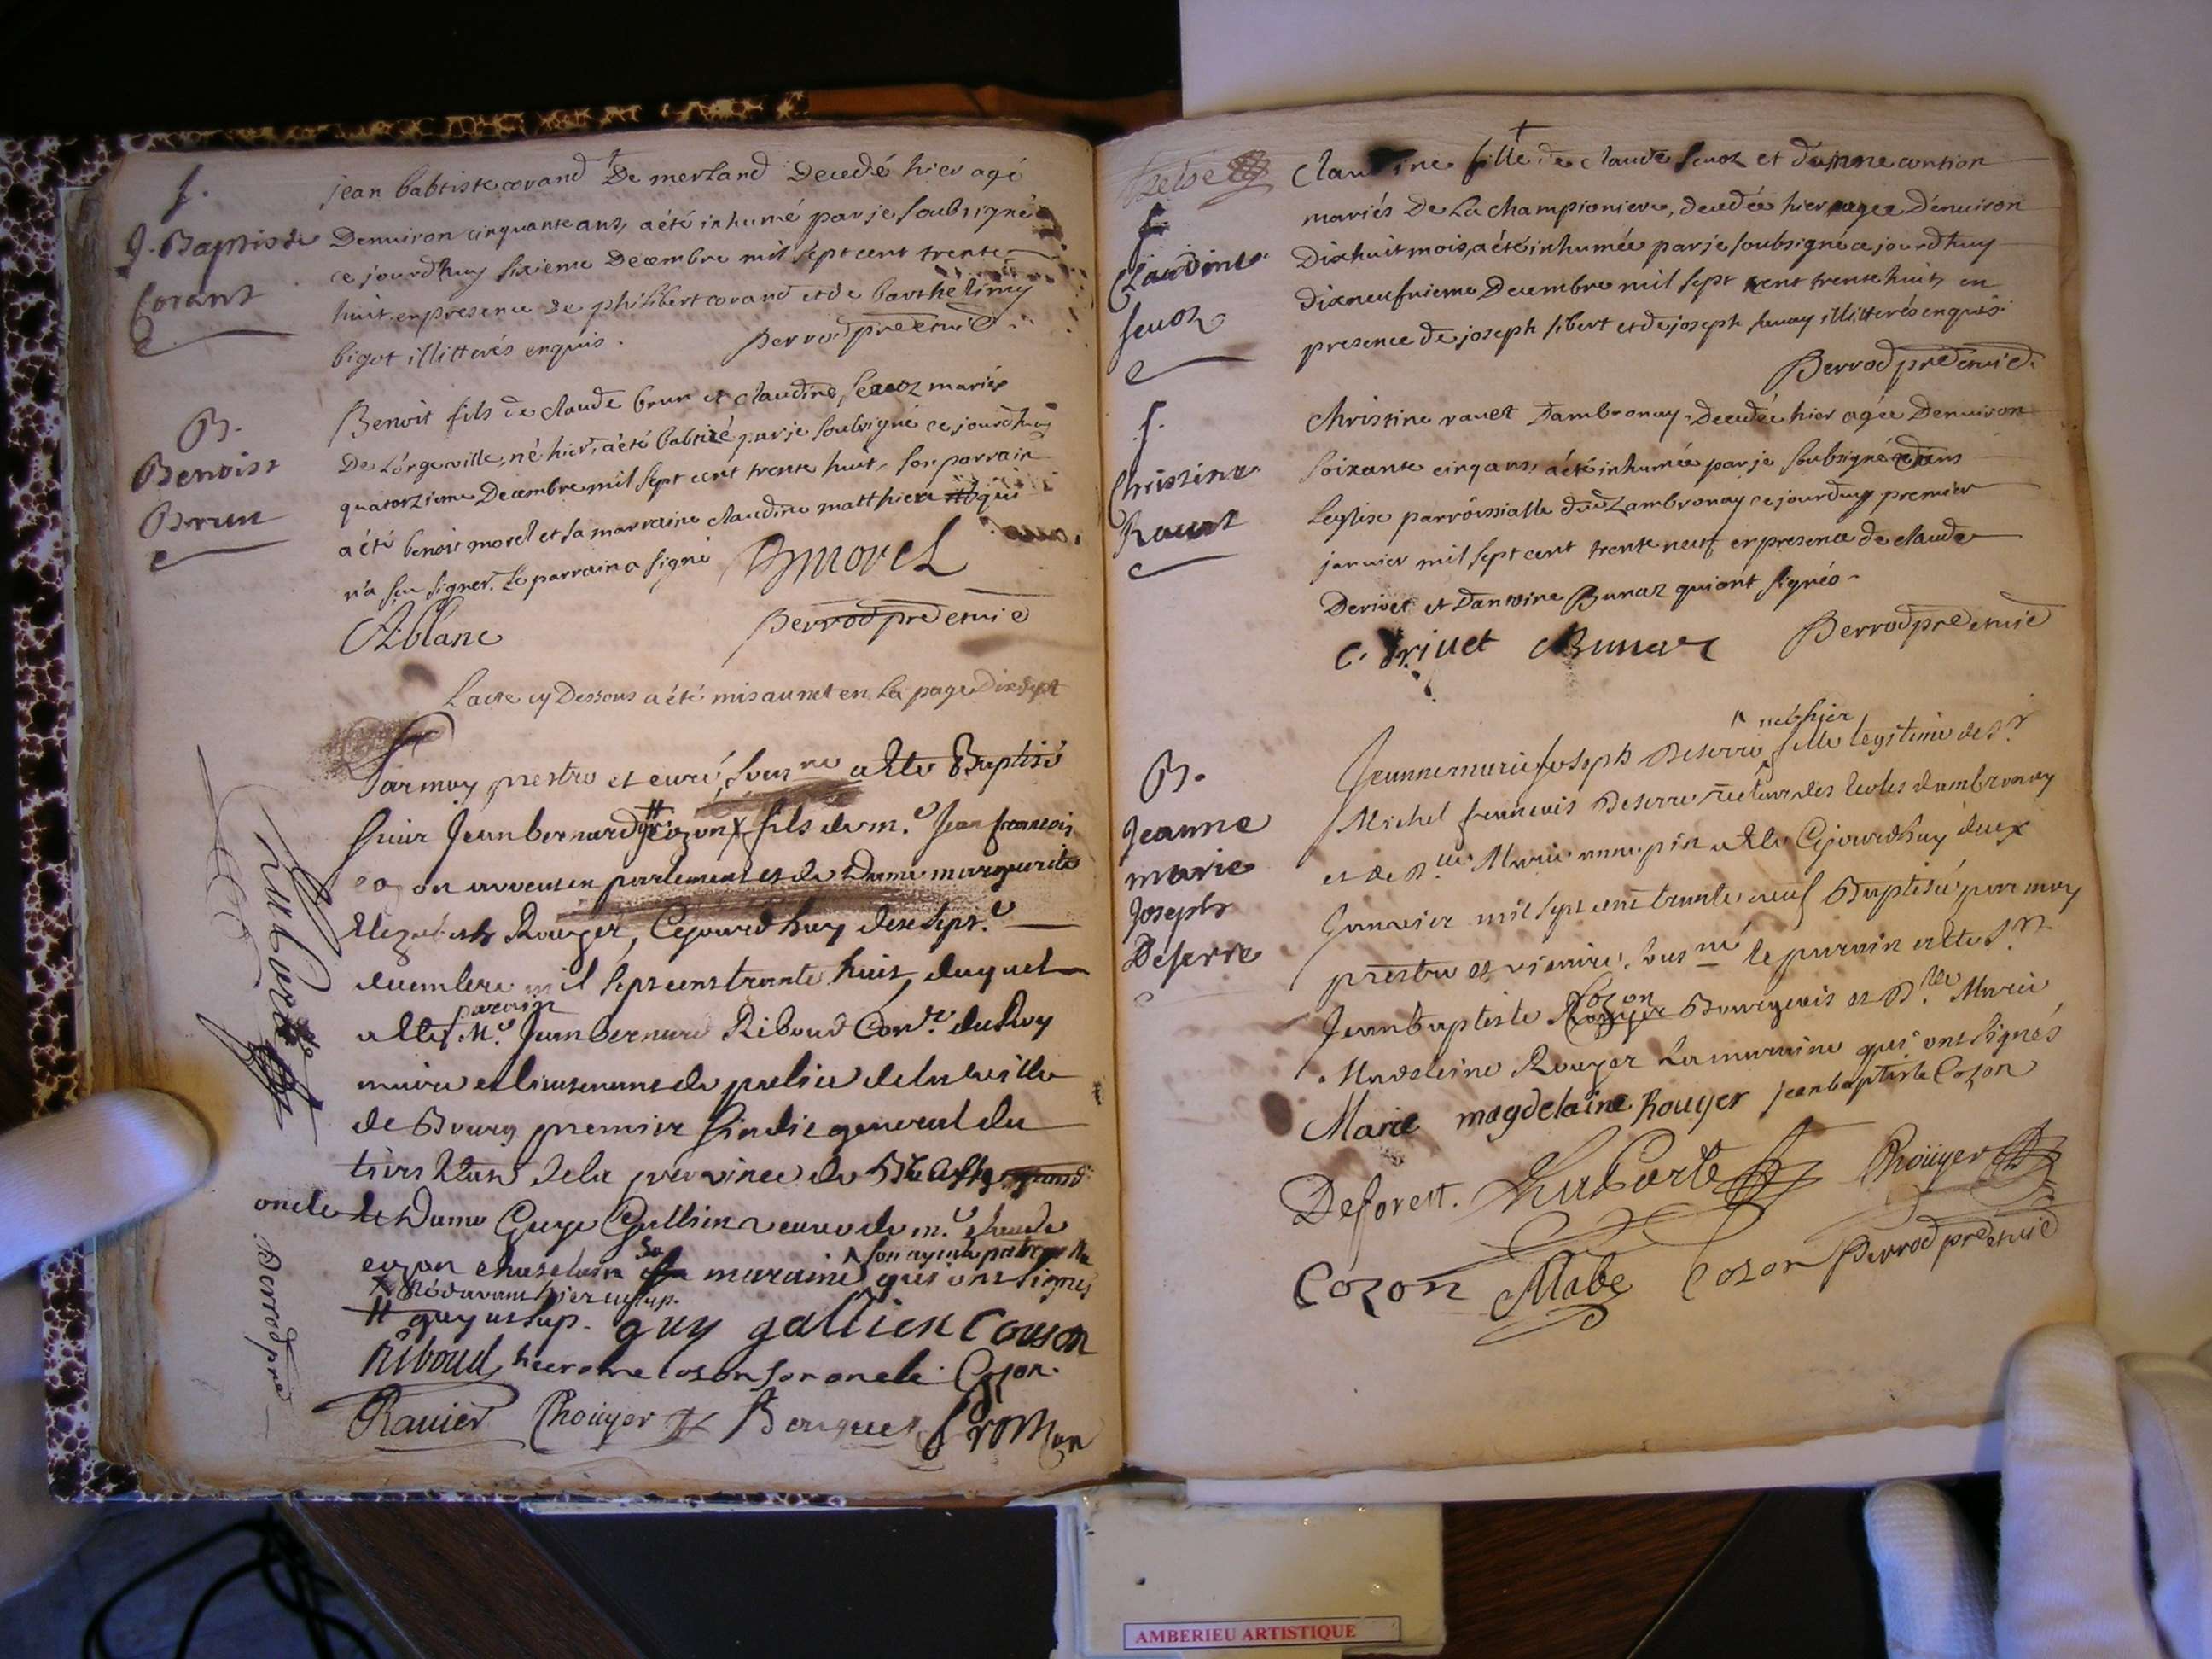 f.
J. Baptiste
Corant
jean babtiste corand De merland Decedé hier agé
Denviron cinquante ans, a été inhumé par je soubsigné
ce jourdhuy sixieme Decembre mil sept cent trente
huit en presence de philibert corand et de barthelimy
bigot illitterés enquis.
Perrod pre et vic
B.
Benoist
Brun
Benoit fils de claude brun et claudine sevoz mariés
De Longeville, né hier, a été babtizé par je soubsigné ce jourdhuy
quatorzieme Decembre mil sept cent trente huit, son parrain
a été benoit morel et sa marraine claudine matthieu qui
n'a sçu signer. Le parrain a signé
B morel
A blanc
Perrod pre et vic
Lacte cy Dessous a été mis au net en la page Dixsept
Par moy prestre et curé, sousne a été Baptisé
sieur Jean bernard cozon fils de m.e Jean francois
cozon avocat en parlement et de Dame marguerite
Elezabeth Rouyer, Cejourdhuy dixsept.e
decembre mil sept cens trente huit, duquel
parain
a été M.e Jean bernard Riboud Con.er du Roy
maire et lieutenant de police de la ville
de Bourg premier sindic general du
tiers Etat de la province de Bresse
oncle Dame Guye Gallien veuve de m.e claude
son ayeule paternelle
cozon chatelain Sa maraine qui ont signés
Né avant hier
guy us sup.
guy gallien Couson
Riboud hierome coson son oncle Cozon.
Ravier Rhoüyer
Perrod pre
f
Claudine
Sevoz
Claudine fille de claude sevoz et de contion
mariés De La championiere, decedée hier agee Denviron
Dixhuit mois, a été inhumée par je soubsigné ce jourdhuy
dixneufvieme Decembre mil sept cent trente huit, en
presence de joseph sibert et de joseph savay illitterés enquis.
Perrod pre et vic.
f.
Christine
Ravet
Christine ravet Dambronay, Decedée hier agée Denviron
soixante cinq ans, a été inhumée par je soubsigné dans
Leglise parroissialle dud ambronay ce jourdhuy premier
janvier mil sept cent trente neuf en presence de claude
Derivet et Dantoine Bunaz qui ont signés.
C. Drivet Bunaz Perrod pre et vic
B.
Jeanne
marie
Joseph
Deserre
née hier
Jeanne marie Joseph Deserre fille legitime de S.r
Michel francois Deserre recteur des ecoles dambronay
et de D.lle Marie anne pin a été Cejourdhuy deux
Janvier mil sept cent trente neuf Baptisée par moy
prestre et vicaire, sousné le parain a été S.r
Jean baptiste Cozon Bourgeois et D.lle Marie
Madeleine Rouyer La maraine qui ont signés
Marie magdelaine Rouyer jean baptiste Cozon
Deforest. Rhoüyer
Cozon Mabe Cozon Perrod pre et vic
AMBERIEU ARTISTIQUE